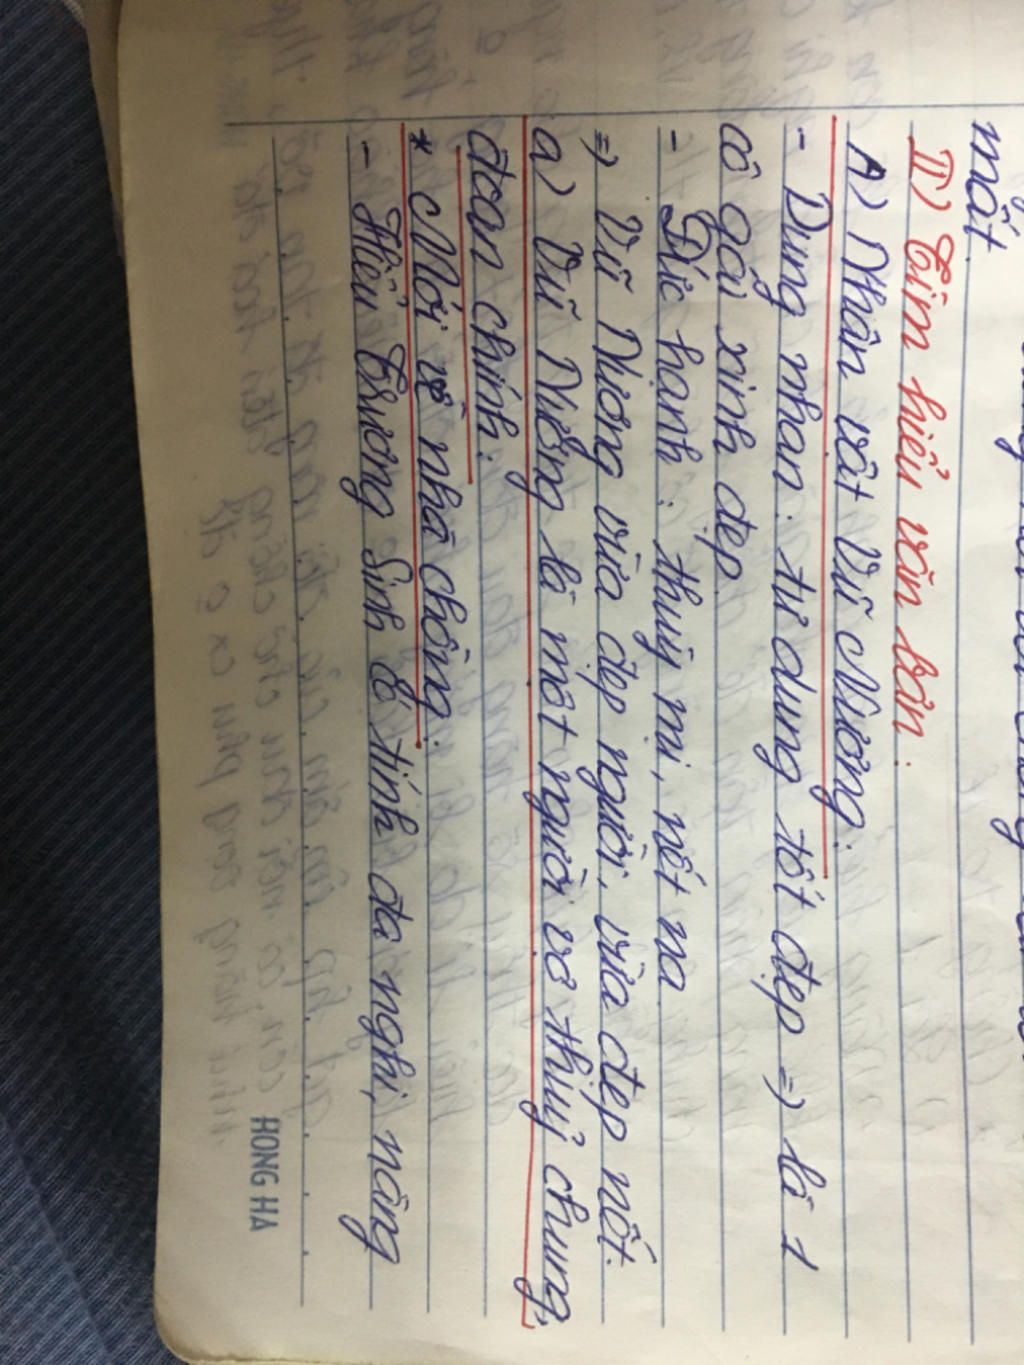 mất.
II) Tìm hiểu văn bản:
A) Nhân vật Vũ Nương:
- Dung nhan: tư dung tốt đẹp => là 1
cô gái xinh đẹp
- Đức hạnh: thuỳ mị, nết na
=> Vũ Nương vừa đẹp người, vừa đẹp nết.
a) Vũ Nương là một người vợ thuỷ chung,
đoan chính:
* Mới về nhà chồng:
- Hiểu Trương Sinh có tính đa nghi, nàng
HONG HA